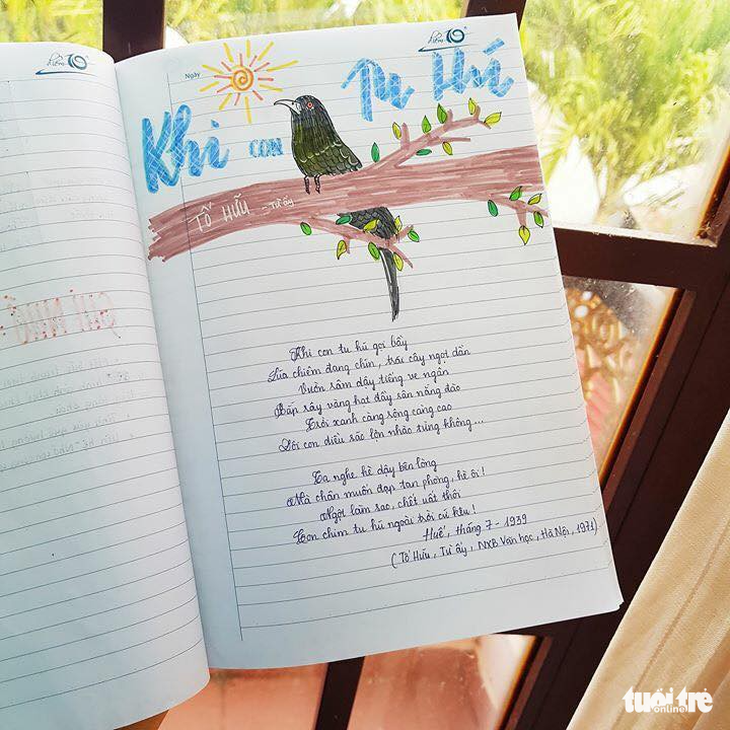 Ngày
Khi con Tu Hú
TỐ HỮU - Từ ấy
Khi con tu hú gọi bầy
Lúa chiêm đang chín, trái cây ngọt dần
Vườn râm dậy tiếng ve ngân
Bắp rây vàng hạt đầy sân nắng đào
Trời xanh càng rộng càng cao
Đôi con diều sáo lộn nhào từng không...
Ta nghe hè dậy bên lòng
Mà chân muốn đạp tan phòng, hè ôi!
Ngột làm sao, chết uất thôi
Con chim tu hú ngoài trời cứ kêu!
Huế, tháng 7 - 1939
(Tố Hữu, Từ ấy, NXB Văn học, Hà Nội, 1971)
tuổi trẻ
online